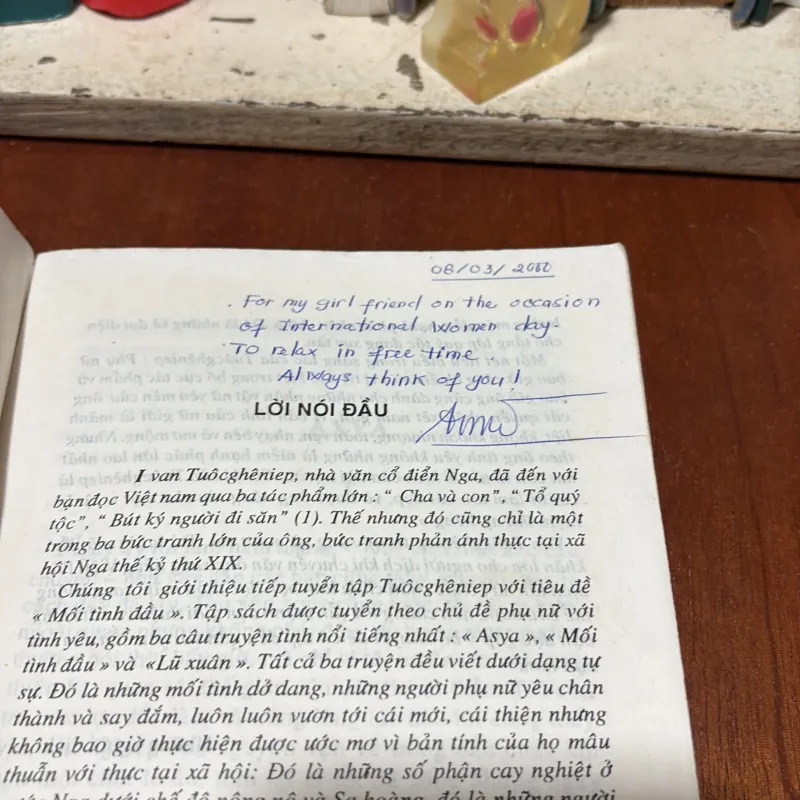 08/03/2000
. For my girl friend on the occasion
of International Women day.
To relax in free time.
Always think of you!
LỜI NÓI ĐẦU
I van Tuôcghêniep, nhà văn cổ điển Nga, đã đến với
bạn đọc Việt nam qua ba tác phẩm lớn : “ Cha và con”, “ Tổ quý
tộc”, “ Bút ký người đi săn” (1). Thế nhưng đó cũng chỉ là một
trong ba bức tranh lớn của ông, bức tranh phản ánh thực tại xã
hội Nga thế kỷ thứ XIX.
Chúng tôi giới thiệu tiếp tuyển tập Tuôcghêniep với tiêu đề
« Mối tình đầu ». Tập sách được tuyển theo chủ đề phụ nữ với
tình yêu, gồm ba câu truyện tình nổi tiếng nhất : « Asya », « Mối
tình đầu » và «Lũ xuân ». Tất cả ba truyện đều viết dưới dạng tự
sự. Đó là những mối tình dở dang, những người phụ nữ yêu chân
thành và say đắm, luôn luôn vươn tới cái mới, cái thiện nhưng
không bao giờ thực hiện được ước mơ vì bản tính của họ mâu
thuẫn với thực tại xã hội: Đó là những số phận cay nghiệt ở
Nga dưới chế độ nông nô và Sa hoàng, đó là những người